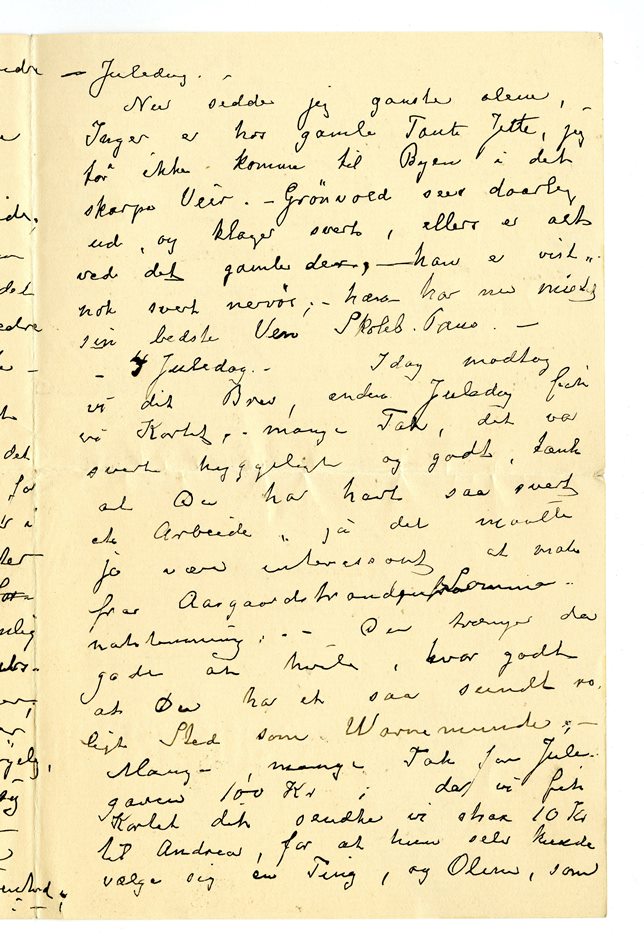 — Juledag. —
Nu sedder jeg ganske alene,
Inger er hos gamle Tante Jette, jeg
tør ikke komme til Byen i det
skarpe Veir. — Grönvold sees daarlig
ud, og klager svert, ellers er alt
ved det gamle der, — han er vist„
nok svert nervös; — han har nu mistet
sin bedste Ven Skoleb. —
— 4 Juledag. — Idag modtog
vi dit Brev, anden Juledag fik
vi Kortet, — mange Tak, det var
svert hyggeligt og godt, tænk
at Du har havt saa svert
et Arbeide „ ja det maatte
jo være interessant at male
fra Aasgaardstrand Somme-
natstemning; — Du trænger da
gode at hvile, hvor godt
at Du har et saa sundt ro„
ligt Sted som Warnemunde; —
Mange, mange Tak for Jule-
gaven 100 Kr ; da vi fik
Kortet dit sendte vi strax 10 Kr
til Andrea, for at hun selv kunde
vælge sig en Ting, og Olem, som